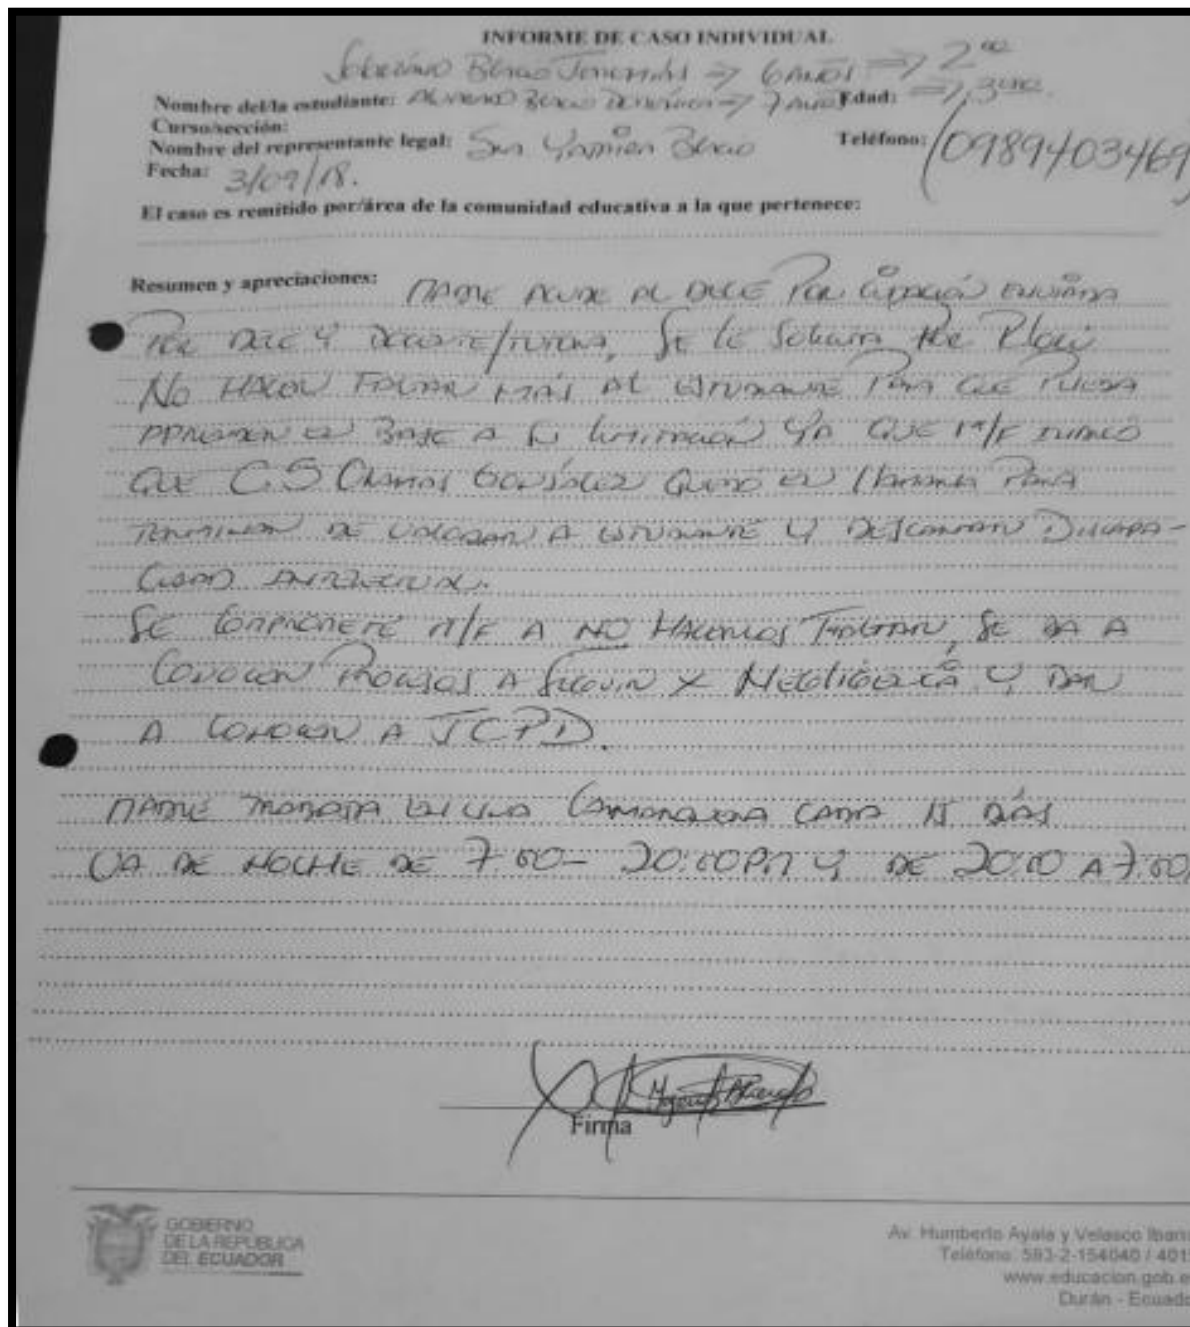 INFORME DE CASO INDIVIDUAL
⇒ 6 AÑOS ⇒ 2do
Nombre del/la estudiante: ⇒ 7 AÑOS Edad: ⇒ 3ero.
Curso/sección:
Nombre del representante legal: Sra Teléfono: (0989403469)
Fecha: 3/09/18.
El caso es remitido por/área de la comunidad educativa a la que pertenece:
Resumen y apreciaciones: MADRE ACUDE AL DECE POR CITACIÓN ENVIADA
POR DECE Y DOCENTE/TUTORA, SE LE SOLICITA POR
NO HACER FALTAR MÁS AL ESTUDIANTE PARA QUE PUEDA
APRENDER EN BASE A SU YA QUE M/F INDICÓ
QUE C.S GONZÁLEZ QUEDÓ EN LLAMARLA PARA
TERMINAR DE VALORAR A ESTUDIANTE Y DESCARTAR DISCAPA-
CIDAD INTELECTUAL.
SE COMPROMETE M/F A NO HACERLOS FALTAR, SE DA A
CONOCER PROCESOS A SEGUIR X NEGLIGENCIA Y DAR
A CONOCER A JCPD.
MADRE TRABAJA EN UNA CAMARONERA CADA 15 DÍAS
VA DE NOCHE DE 7:00 - 20:00 PM Y DE 20:00 A 7:00
Firma
GOBIERNO
DE LA REPÚBLICA
DEL ECUADOR
Av. Humberto Ayala y Velasco
Teléfono: 593-2-154040 / 401
www.educacion.gob.e
Durán - Ecuado